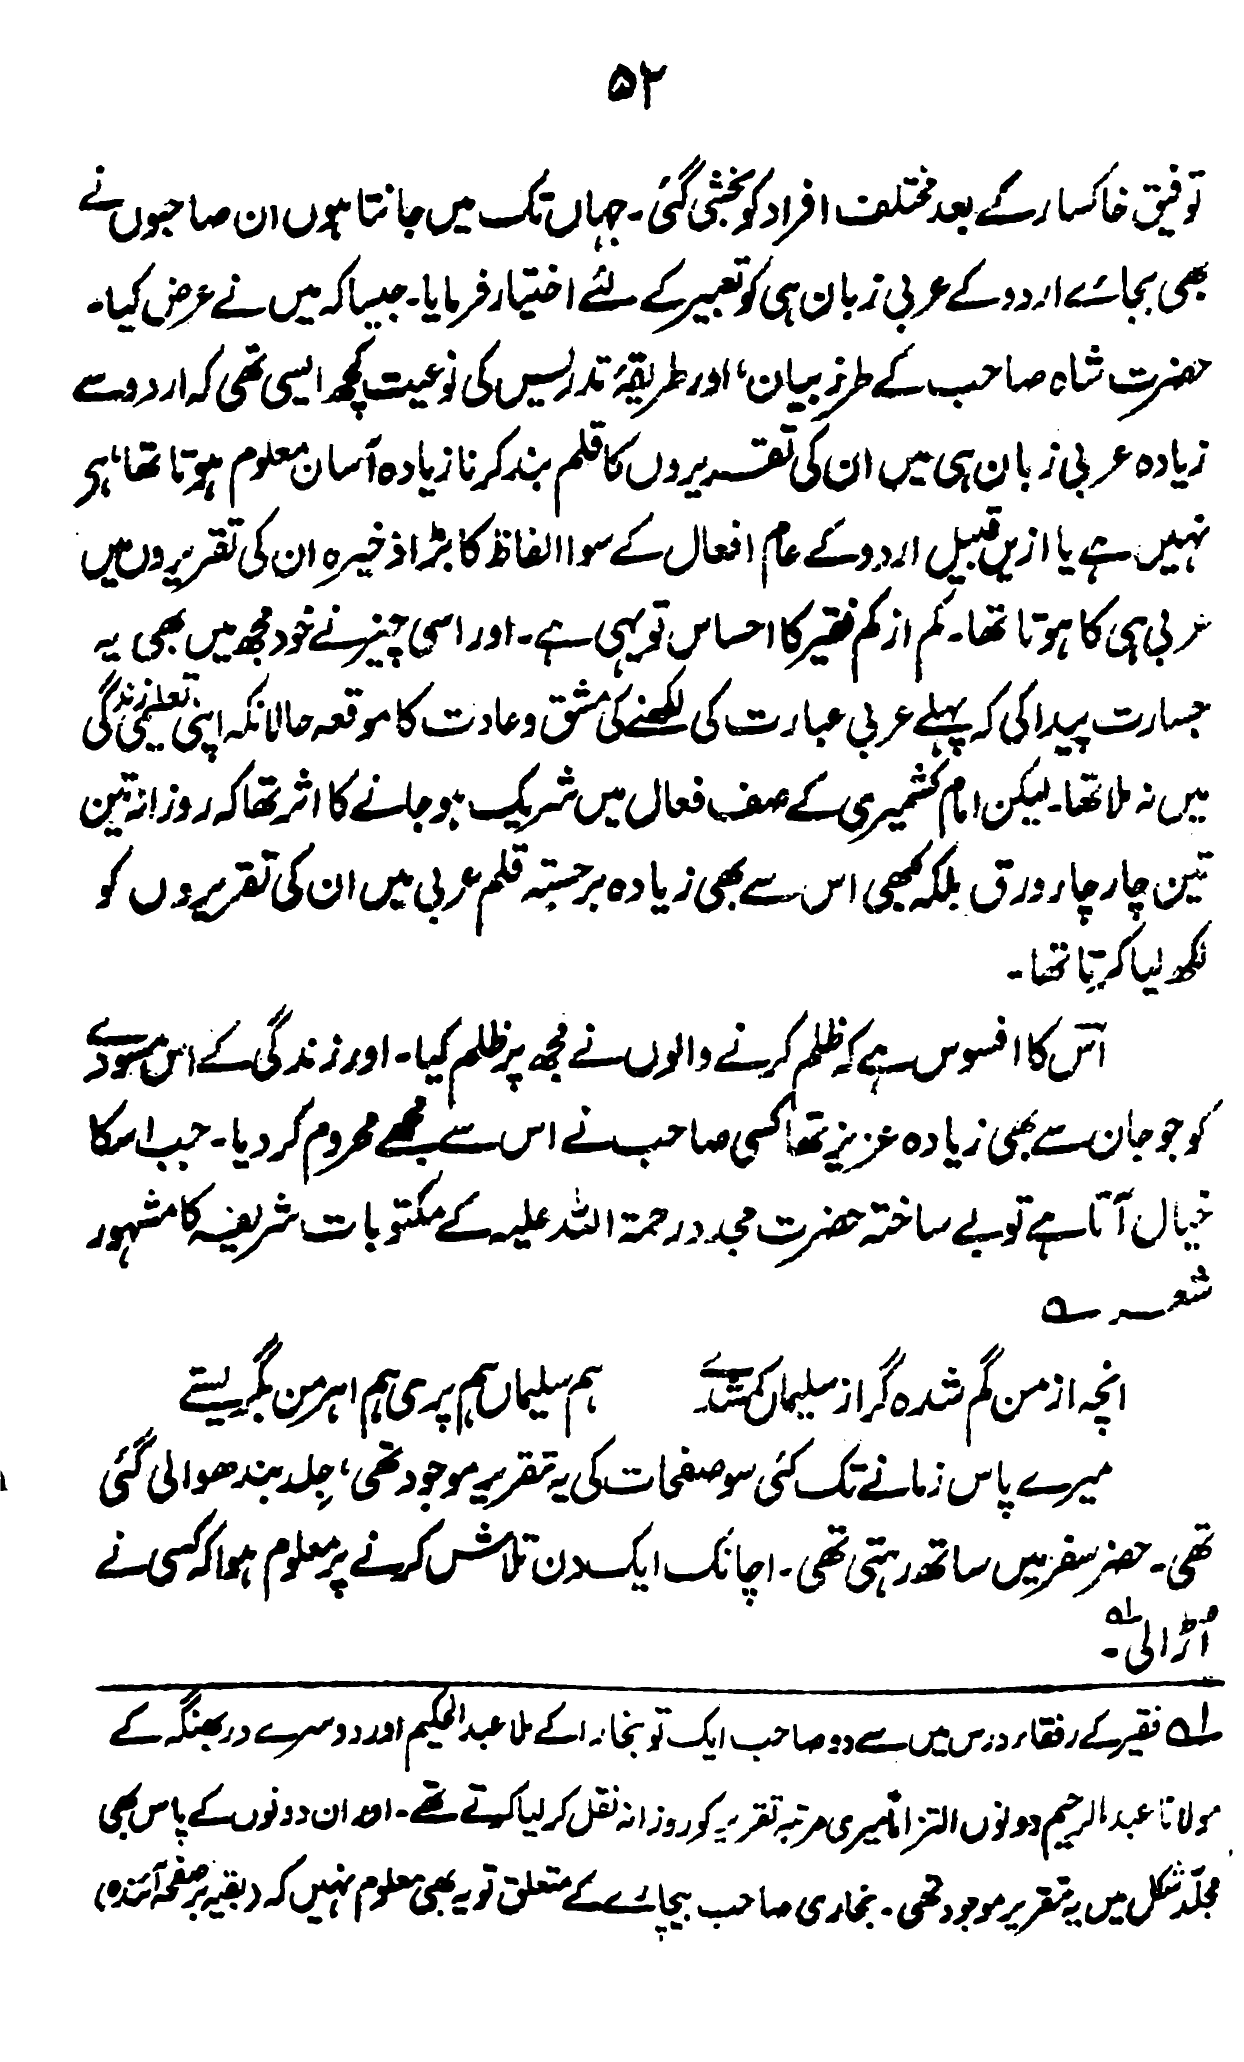 ۵۲
توفیق خاکسار کے بعد مختلف افراد کو بخشی گئی۔ جہاں تک میں جانتا ہوں ان صاحبوں نے
بھی بجائے اردو کے عربی زبان ہی کو تعبیر کے لئے اختیار فرمایا۔ جیسا کہ میں نے عرض کیا۔
حضرت شاہ صاحب کے طرز بیان، اور طریقۂ تدریس کی نوعیت کچھ ایسی تھی کہ اردو سے
زیادہ عربی زبان ہی میں ان کی تقریروں کا قلم بند کرنا زیادہ آسان معلوم ہوتا تھا، ہر
نہیں ہے یا ازیں قبیل اردو کے عام افعال کے سوا الفاظ کا بڑا ذخیرہ ان کی تقریروں میں
عربی ہی کا ہوتا تھا۔ کم از کم فقیر کا احساس تو یہی ہے۔ اور اسی چیز نے خود مجھ میں بھی یہ
جسارت پیدا کی کہ پہلے عربی عبارت کی لکھنے کی مشق و عادت کا موقعہ حالانکہ اپنی تعلیمی زندگی
میں نہ ملا تھا۔ لیکن امام کشمیری کے صف فعال میں شریک ہو جانے کا اثر تھا کہ روزانہ تین
تین چار چار ورق بلکہ کبھی اس سے بھی زیادہ برجستہ قلم عربی میں ان کی تقریروں کو
لکھ لیا کرتا تھا۔
اس کا افسوس ہے کہ ظلم کرنے والوں نے مجھ پر ظلم کیا۔ اور زندگی کے اس مسودے
کو جو جان سے بھی زیادہ عزیز تھا کسی صاحب نے اس سے مجھے محروم کر دیا۔ جب اسکا
خیال آتا ہے تو بے ساختہ حضرت مجدد رحمۃ اللہ علیہ کے مکتوبات شریفہ کا مشہور
شعر ؎
انچہ از من گم شدہ گر از سلیماں گم شدے ہم سلیماں ہم پری ہم اہرمن بگریستے
میرے پاس زمانے تک کئی سو صفحات کی یہ تقریر موجود تھی، جِلد بندھوالی گئی
تھی۔ حضر سفر میں ساتھ رہتی تھی۔ اچانک ایک دن تلاش کرنے پر معلوم ہوا کہ کسی نے
اُڑالی۔ لہ
لہ فقیر کے رفقاء درس میں سے دو صاحب ایک تو بخارا کے ملا عبدالحکیم اور دوسرے دربھنگہ کے
مولانا عبدالرحیم دونوں التزاماً میری مرتبہ تقریر کو روزانہ نقل کر لیا کرتے تھے۔ اور ان دونوں کے پاس بھی
مجلّد شکل میں یہ تقریر موجود تھی۔ بخاری صاحب بیچارے کے متعلق تو یہ بھی معلوم نہیں کہ (بقیہ بر صفحہ آئندہ)